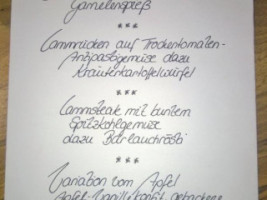 Garnelenspieß
***
Lammrücken auf Trockentomaten-
Antipastigemüse dazu
Kräuterkartoffelwürfel
***
Lammsteak mit buntem
Spitzkohlgemüse
dazu Bärlauchrösti
***
Variation vom Apfel
Apfel-Vanillekonfit, gebackene